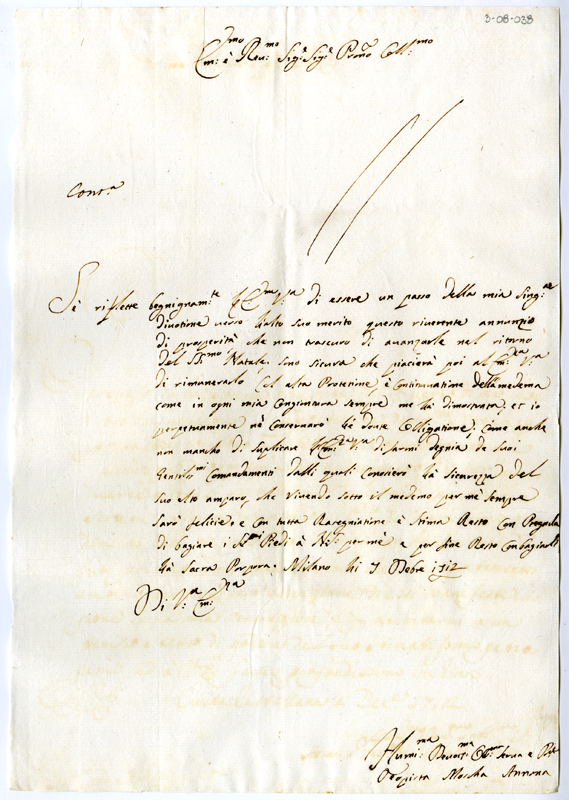 3-08-038
Em:mo è Reu:mo Sig:r Sig:r Pron̄o Coll:mo
Cons.a
Sè riflette begnignam:te l'Em:ma V:ra di essere un passo della mia Sing:re
diuotione uerso l'alto suo merito questo riuerente annunzio
di prosperità che non trascuro di auanzarle nel ritorno
del SS:mo Natale. Sono sicura che piacierà poi al Em:za V:ra
di rimunerarlo Col alta Protetione, è Continuatione della medema
come in ogni mia Congiontura sempre me l'à dimostrata, et io
perpetuamente nè Conseruarò le doute Obligatione, Come anche
non mancho di Suplicare l'Em:za V:ra di farmi degnia de Suoi
Gentiliss:mi Comandamenti dalli quali Conoscierò la Sicurezza del
Suo alto amparo, che uiuendo Sotto il medemo per mè Sempre
Sarò felicie, e Con tutta Rasegniatione è Stima Resto Con Pregarla
di bagiare i SS:mi Piedi à N: S: per mè e per fine Resto Con bagiarli
la Sacra Porpora. Milano li 7 Debre 1712
Di V:ra Em:za
Humi:ma Deuot:ma Obl:ma Serua e
Moscha Annona